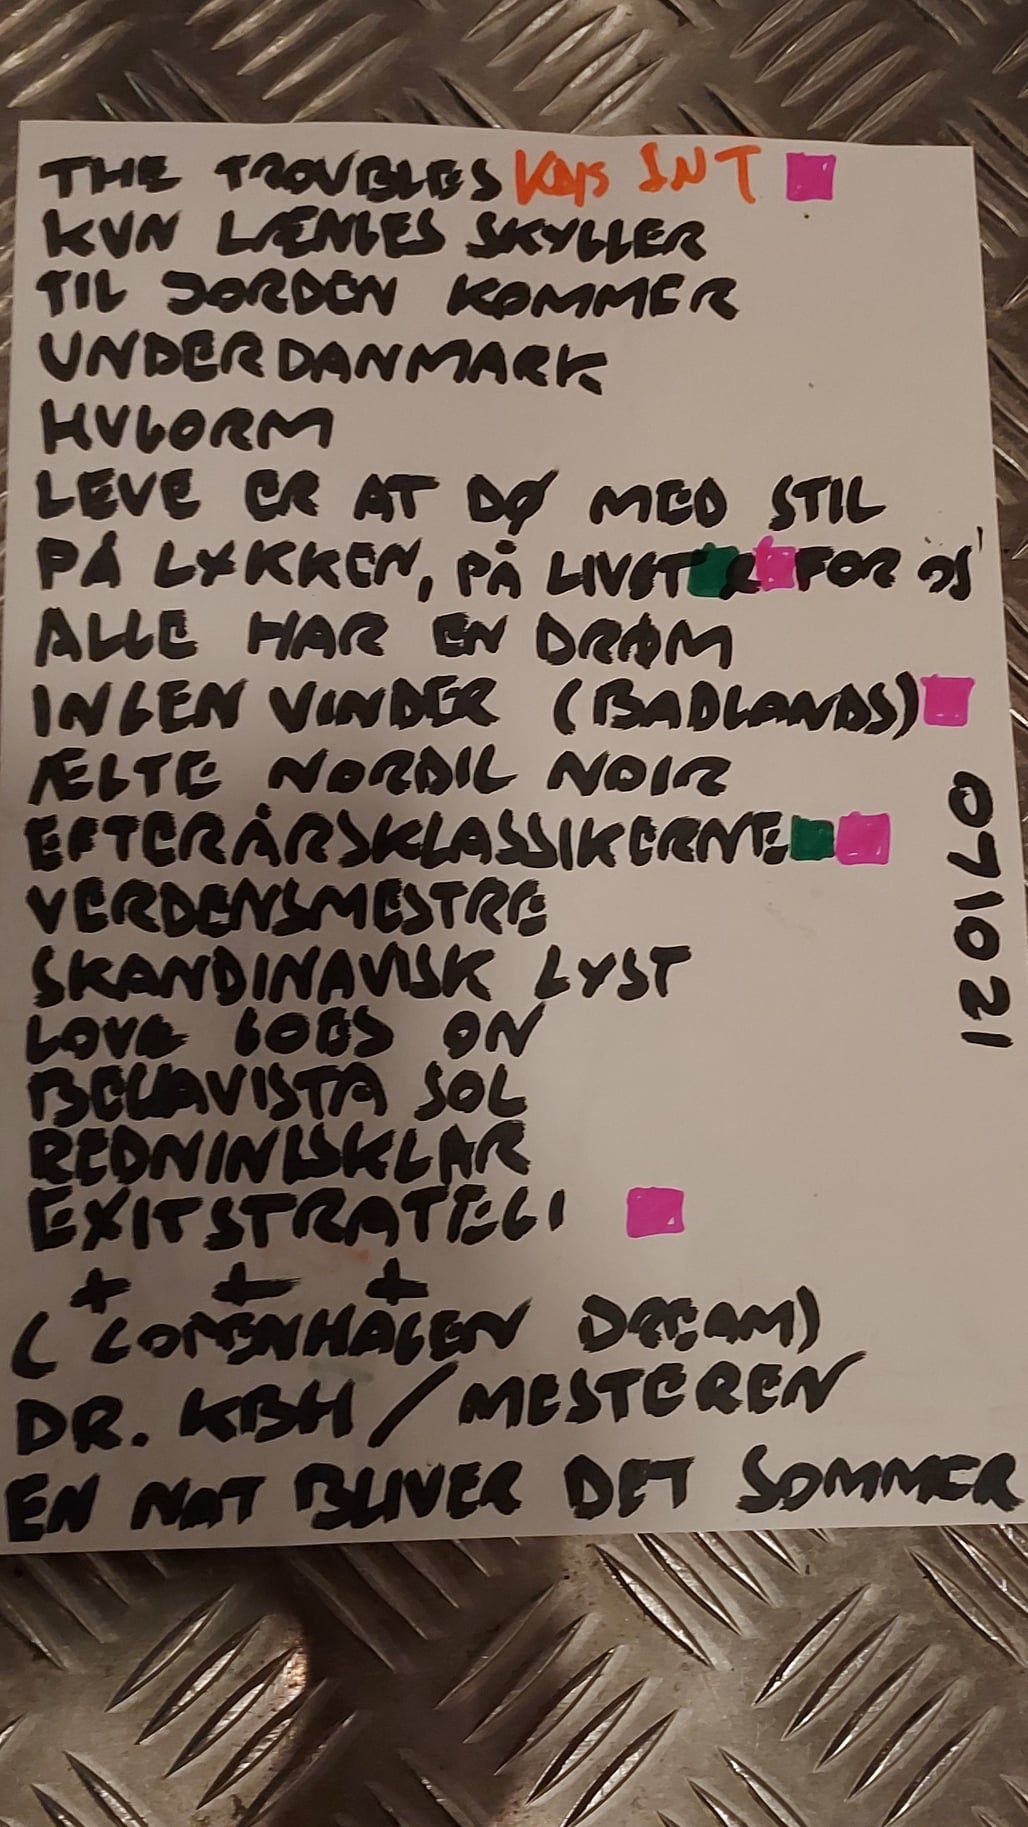 THE TROUBLES Keys INT
KUN LÆNGES SKYLLER
TIL JORDEN KOMMER
UNDERDANMARK
HUGORM
LEVE ER AT DØ MED STIL
PÅ LYKKEN, PÅ LIVET FOR OS
ALLE HAR EN DRØM
INGEN VINDER (BADLANDS)
ÆGTE NORDIC NOIR
EFTERÅRSKLASSIKERNE
VERDENSMESTRE
SKANDINAVISK LYST
LOVE GOES ON
BELLAVISTA SOL
REDNINGSKLAR
EXITSTRATEGI
+ + +
(COPENHAGEN DREAM)
DR. KBH / MESTEREN
EN NAT BLIVER DET SOMMER
071021